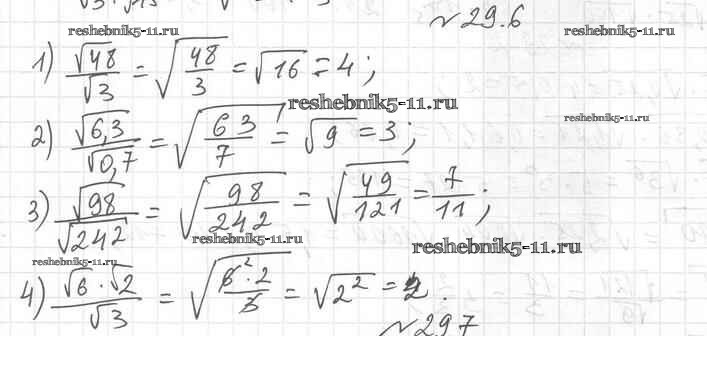 № 29.6
reshebnik5-11.ru reshebnik5-11.ru
1) √48/√3 = √(48/3) = √16 = 4;
reshebnik5-11.ru reshebnik5-11.ru
2) √6,3/√0,7 = √(63/7) = √9 = 3;
3) √98/√242 = √(98/242) = √(49/121) = 7/11;
reshebnik5-11.ru reshebnik5-11.ru
reshebnik5-11.ru
4) √6·√2/√3 = √(6²·2/3) = √2² = 2.
№ 297